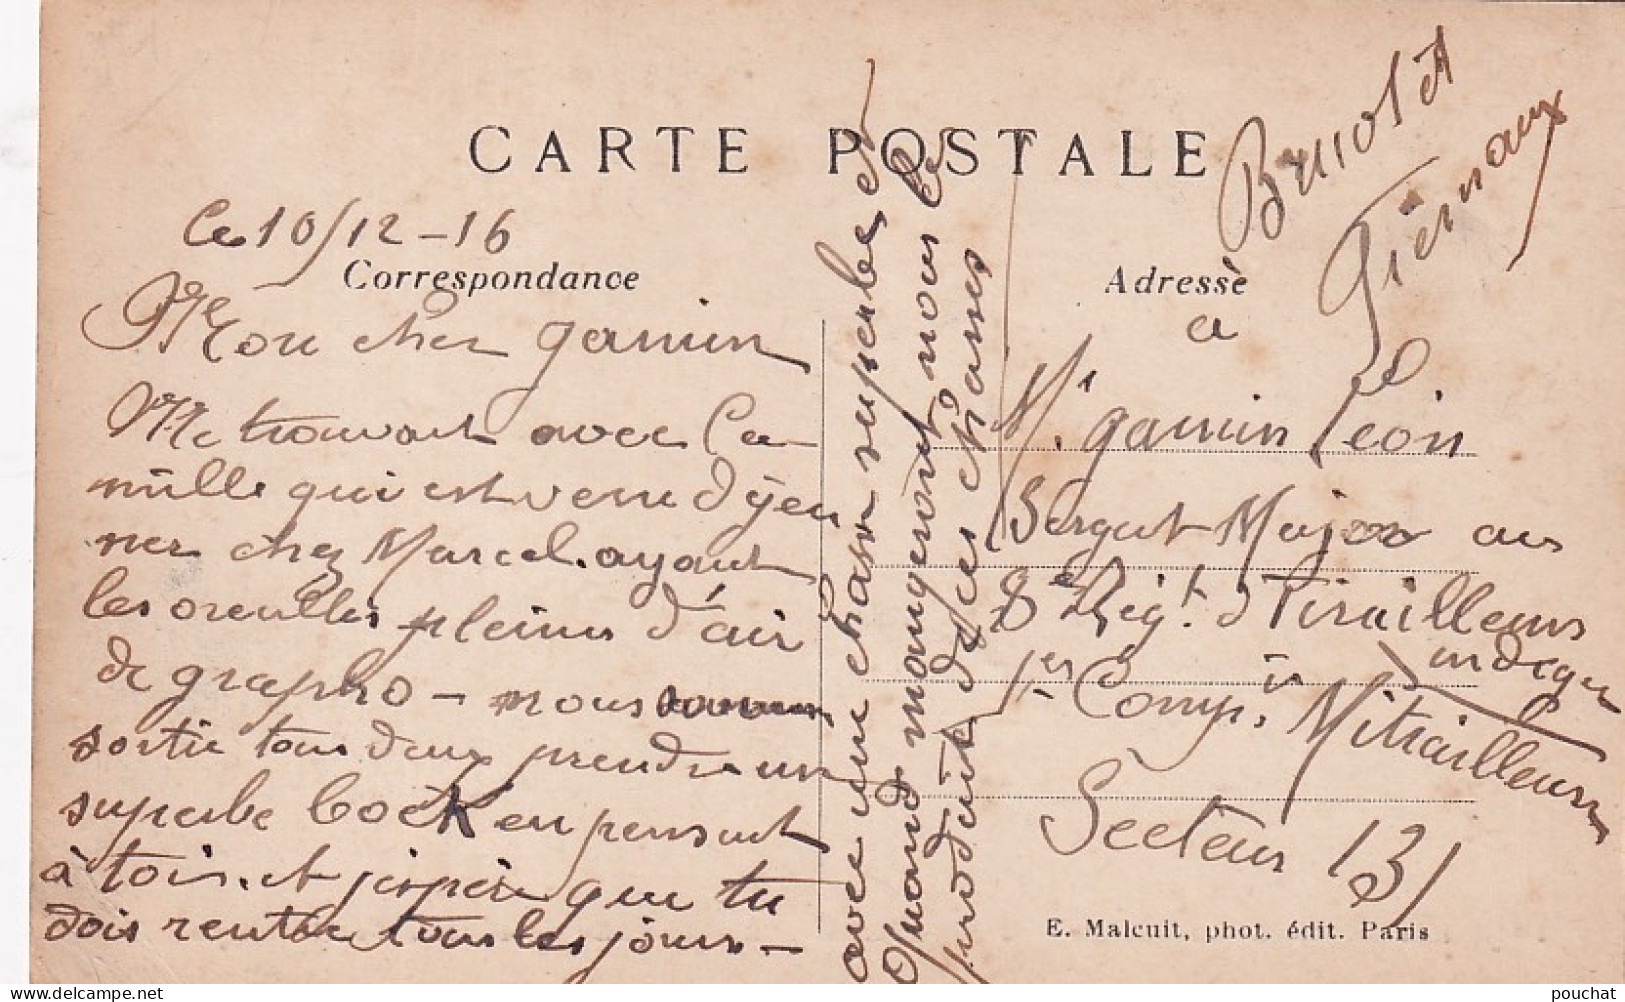 CARTE POSTALE
Ce 10/12-16
Correspondance
Mon cher gamin
Me trouvant avec Ca-
mille qui est venu déjeu
ner chez Marcel. ayant
les oreilles pleines d'air
de grapho - nous
sortie tous deux prendre un
superbe bock en pensant
à toi. et j'espère que tu
dois rentrer tous les jours -
avec une chasse superbe et
quand mangeront nous le
produit de ces chasses
Bruolet
Piernaux
Adresse
a
Mr. gamin Léon
Sergent Major au
8e Régt. d Tirailleurs
indegn
1er Comp. Mitrailleurs
Secteur 131
E. Malcuit, phot. édit. Paris
pouchat